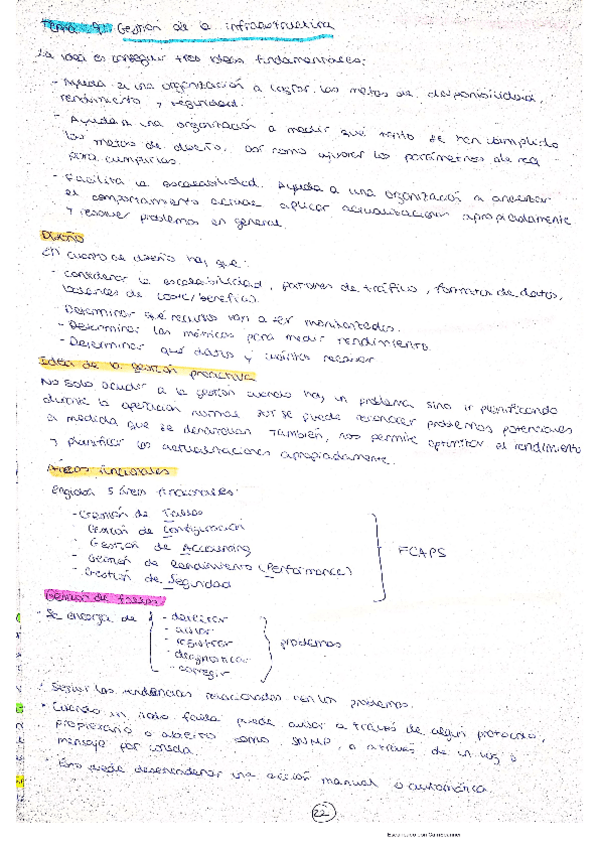 Tema 9: Gestión de la infraestructura
La idea es conseguir tres ideas fundamentales:
- Ayuda a una organización a lograr las metas de disponibilidad,
rendimiento y seguridad.
- Ayuda a una organización a medir qué tanto se han cumplido
las metas de diseño, así como ajustar los parámetros de red
para cumplirlas.
- Facilita la escalabilidad. Ayuda a una organización a analizar
el comportamiento actual, aplicar actualizaciones apropiadamente
y resolver problemas en general.
Diseño
En cuanto al diseño hay que:
- Considerar la escalabilidad, patrones de tráfico, formatos de datos,
balances de coste/beneficio.
- Determinar qué recursos van a ser monitoreados.
- Determinar las métricas para medir rendimiento.
- Determinar qué datos y cuántos recolectar
Idea de la gestión proactiva
No solo acudir a la gestión cuando hay un problema sino ir planificando
durante la operación normal. Así se puede reconocer problemas potenciales
a medida que se desarrollan. También, nos permite optimizar el rendimiento
y planificar las actualizaciones apropiadamente.
Áreas funcionales
Engloba 5 áreas funcionales:
- Gestión de Fallos
- Gestión de Configuración
- Gestión de Accounting
- Gestión de Rendimiento (Performance)
- Gestión de Seguridad
FCAPS
Gestión de fallos
· Se encarga de
- detectar
- aislar
- registrar
- diagnosticar
- corregir
problemas
· Seguir las tendencias relacionadas con los problemas.
· Cuando un nodo falla puede avisar a través de algún protocolo,
propietario o abierto como SNMP, o a través de un log o
mensaje por consola.
· Esto puede desencadenar una acción manual o automática.
22
Escaneado con CamScanner